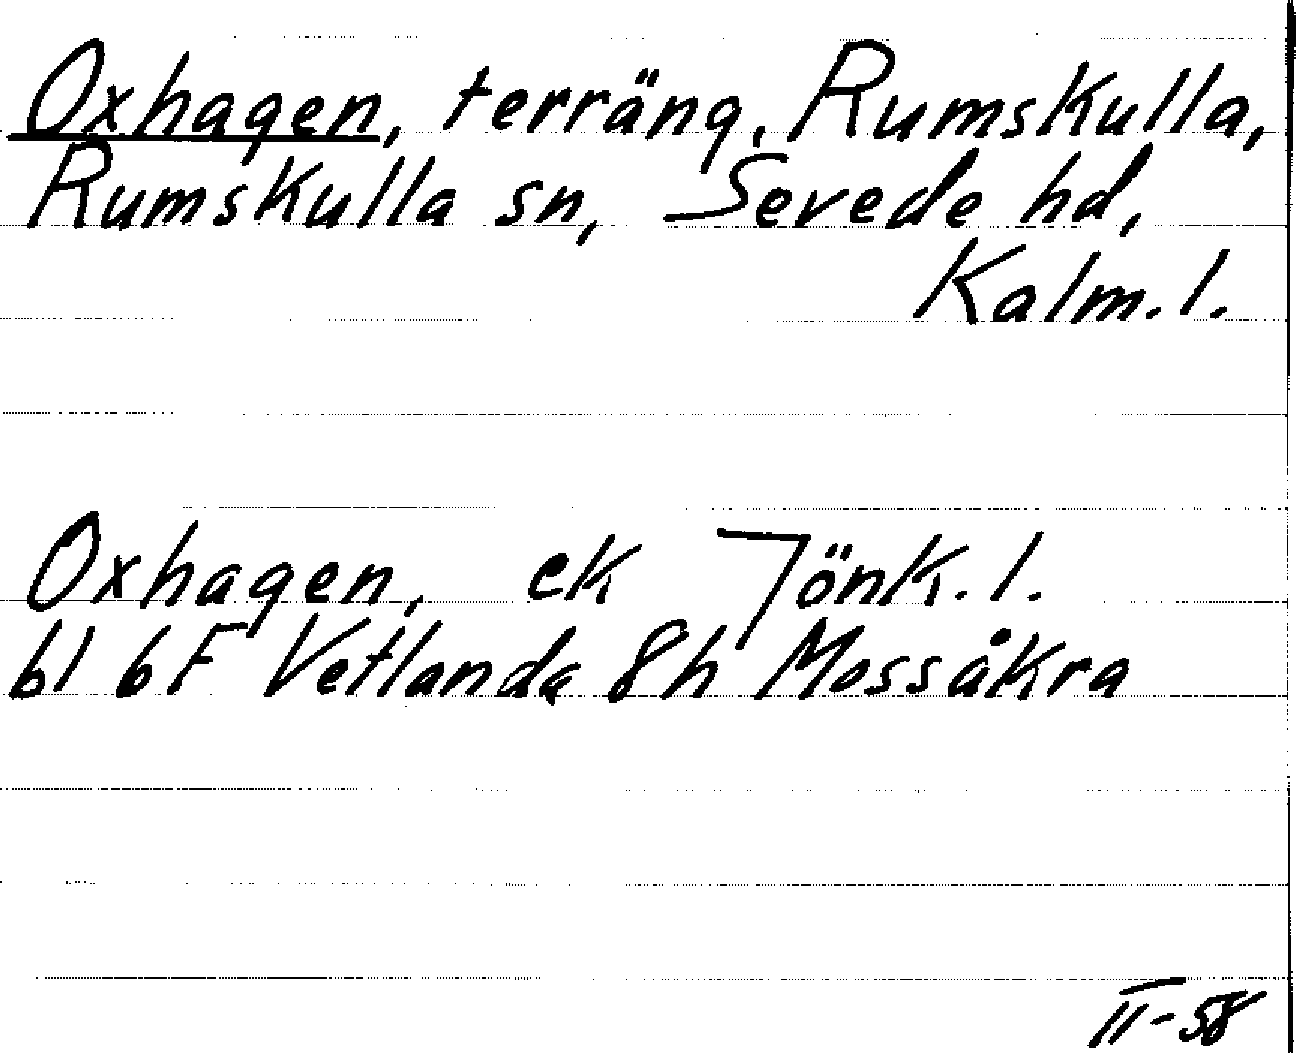 Oxhagen, terräng, Rumskulla,
Rumskulla sn, Sevede hd,
Kalm. l.
Oxhagen, ek Jönk. l.
bl 6F Vetlanda 8h Mossåkra
II-58